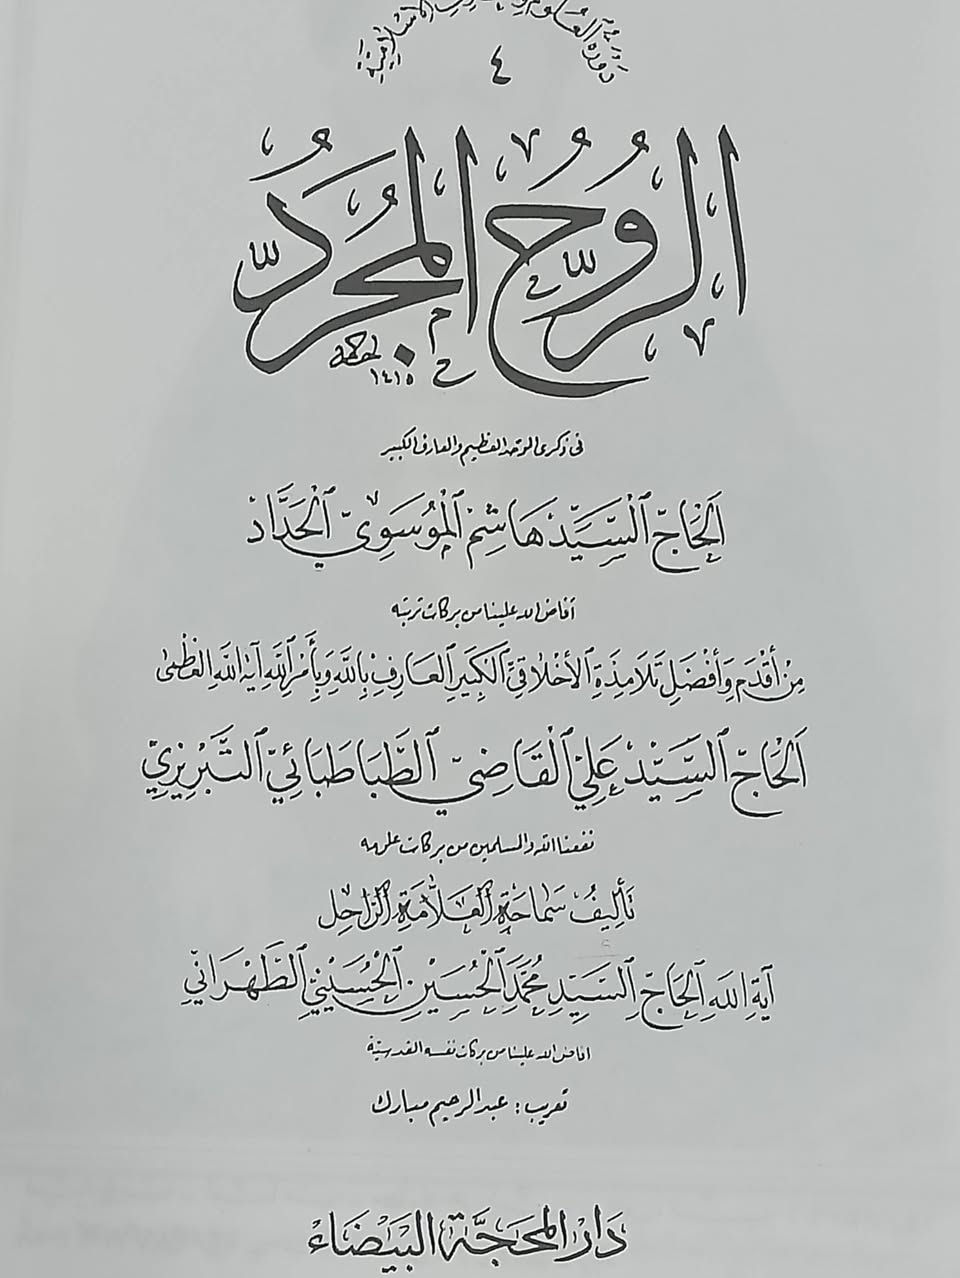 دورة العلوم والمعارف الإسلامية
٤
الرُّوحُ المُجَرَّدُ
١٤١٥
في ذكرى الموحد العظيم والعارف الكبير
اَلْحَاجّ السَّيِّد هَاشِم الْمُوسَوِيّ الْحَدَّاد
أفاض الله علينا من بركات تربته
مِنْ أَقْدَمِ وَأَفْضَلِ تَلَامِذَةِ الأَخْلَاقِيِّ الْكَبِيرِ الْعَارِفِ بِاللَّهِ وَبِأَمْرِ اللَّهِ آيَةِ اللَّهِ الْعُظْمَى
اَلْحَاجّ السَّيِّد عَلِيّ الْقَاضِيّ الطَّبَاطَبَائِيّ التَّبْرِيزِيّ
نفعنا الله والمسلمين من بركات علومه
تَأْلِيفُ سَمَاحَةِ الْعَلَّامَةِ الرَّاحِلِ
آيَةِ اللَهِ الْحَاجّ السَّيِّدِ مُحَمَّد الْحُسَيْن الْحُسَيْنِيّ الطَّهْرَانِيّ
أفاض الله علينا من بركات نفسه القدسيّة
تعريب: عبد الرحيم مبارك
دَارُ الْمَحَجَّةِ الْبَيْضَاءِ